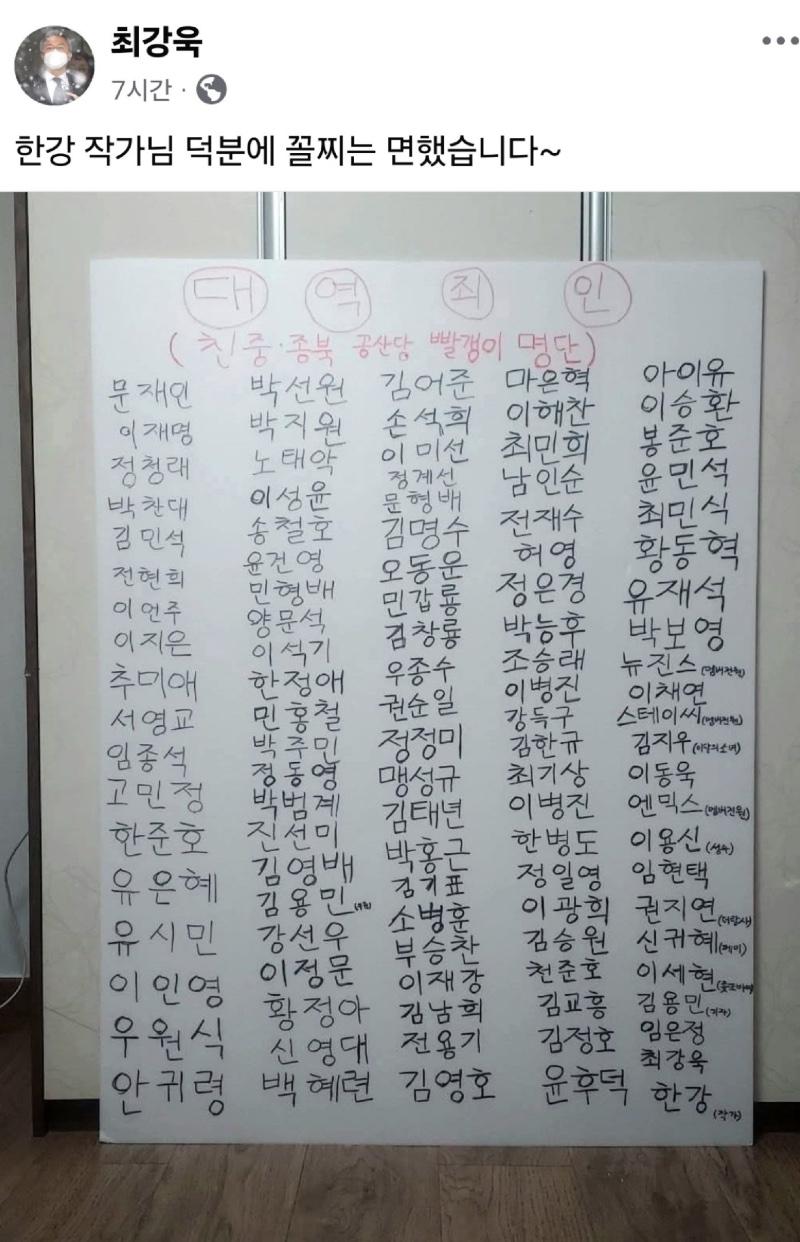 최강욱
7시간
한강 작가님 덕분에 꼴찌는 면했습니다~
대 역 죄 인
(친중·종북 공산당 빨갱이 명단)
문재인
이재명
정청래
박찬대
김민석
전현희
이언주
이지은
추미애
서영교
임종석
고민정
한준호
유은혜
유시민
이인영
우원식
안귀령
박선원
박지원
노태악
이성윤
송철호
윤건영
민형배
양문석
이석기
한정애
민홍철
박주민
정동영
박범계
진선미
김영배
김용민
강선우
이정문
황정아
신영대
백혜련
김어준
손석희
이미선
정계선
문형배
김명수
오동운
민갑룡
김창룡
우종수
권순일
정정미
맹성규
김태년
박홍근
김기표
소병훈
부승찬
이재강
김남희
전용기
김영호
마은혁
이해찬
최민희
남인순
전재수
허영
정은경
박능후
조승래
이병진
강득구
김한규
최기상
이병진
한병도
정일영
이광희
김승원
천준호
김교흥
김정호
윤후덕
아이유
이승환
봉준호
윤민석
최민식
황동혁
유재석
박보영
뉴진스(멤버전원)
이채연
스테이씨(멤버전원)
김지우(이달의소녀)
이동욱
엔믹스(멤버전원)
이용신(성우)
임현택
권지연
신귀혜
이세현
김용민(기자)
임은정
최강욱
한강(작가)